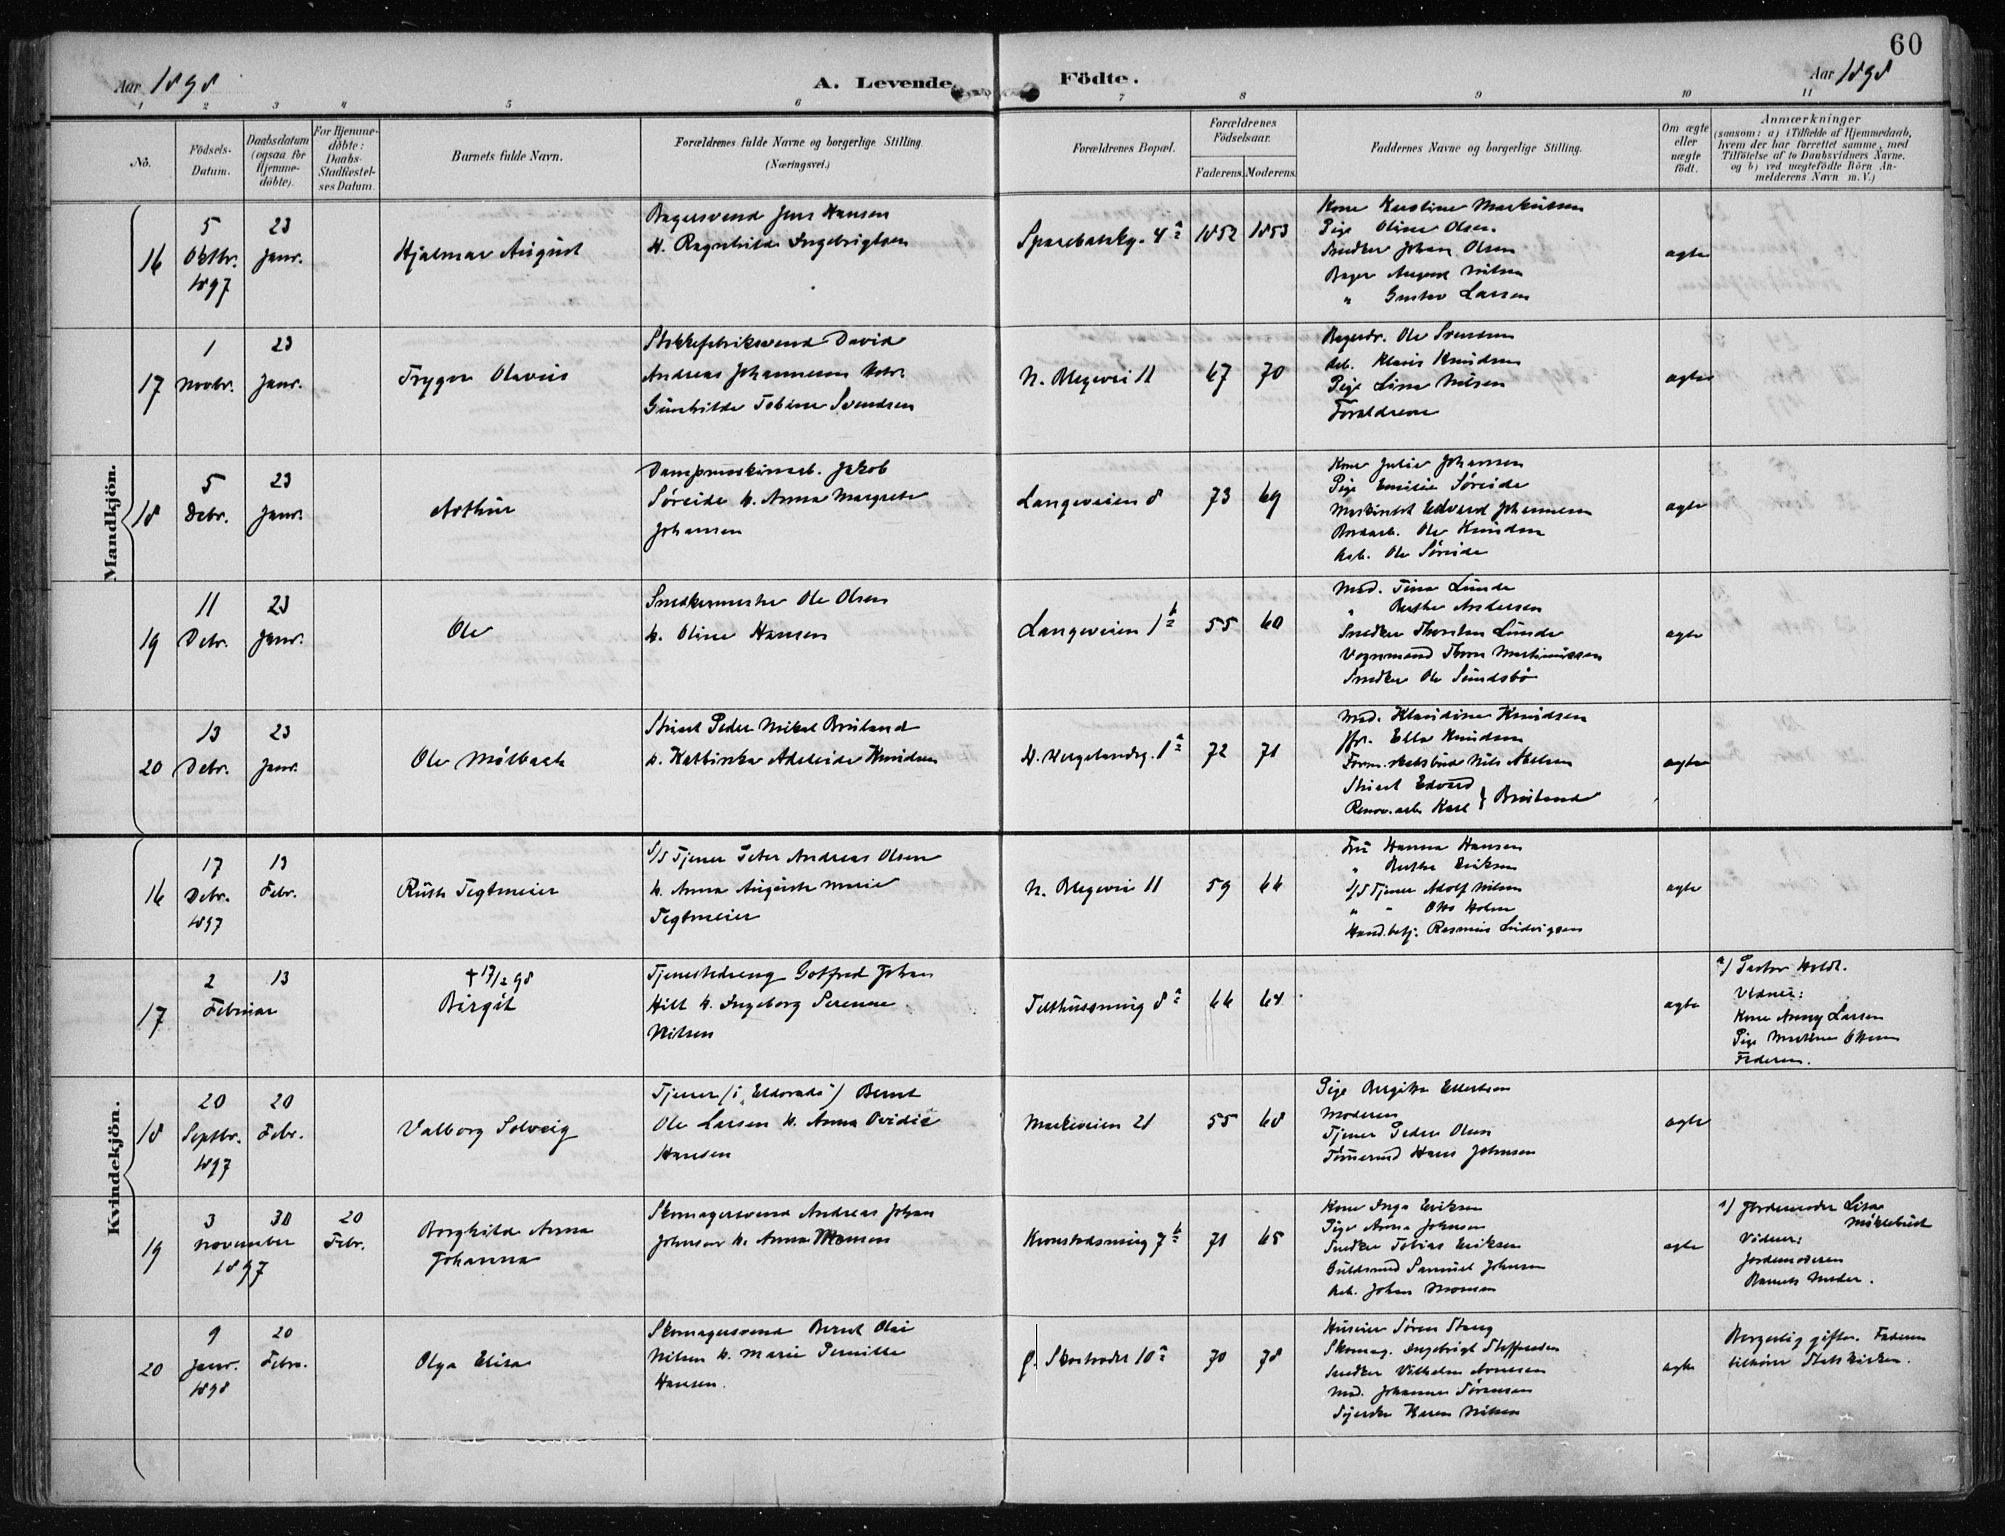 60
Aar 1898 A. Levende Födte. Aar 1898
1 2 3 4 5 6 7 8 9 10 11
No.
Födsels-
Datum.
Daabsdatum
(ogsaa for
Hjemme-
döbte).
For Hjemme-
döbte:
Daabs-
Stadfæstel-
ses Datum.
Barnets fulde Navn.
Forældrenes fulde Navne og borgerlige Stilling
(Næringsvei.)
Forældrenes Bopæl.
Forældrenes
Födselsaar.
Faderens. Moderens.
Faddernes Navne og borgerlige Stilling.
Om ægte
eller
uægte
födt.
Anmærkninger
(saasom: a) i Tilfælde af Hjemmedaab,
hvem der har forrettet samme, med
Tilföielse af to Daabsvidners Navne.
og b) ved uægtefödte Börn An-
melderens Navn m. V.)
Mandkjön.
16
5
Oktbr.
1897
23
Janr.
Hjalmar August
Bagersvend Jens Hansen
h. Ragnhilda Ingebrigtsen
Sparebanksg. 4 a
1852 1853
Kone Kirstine Markussen
Pige Oline Olsen
Snedker Johan Olsen
Bager August Nilsen
" Gustav Larsen
ægte
17
1
Novbr.
23
Janr.
Trygve Olavus
Stokkefabriksvend David
Andreas Johannesen
Gunhilda Tobine Svendsen
N. Blegevei 11
67 70
Ole Svendsen
Arb. Klaus Knudsen
Pige Lina Nilsen
Forældrene
ægte
18
5
Debr.
23
Janr.
Arthur
Dampmaskinarb. Jakob
Søreide h. Anna Margrete
Johansen
Langeveien 8
73 69
Kone Julie Johansen
Pige Emilie Søreide
Maskinist Edvard Johannesen
Ole Knudsen
Arb. Ole Søreide
ægte
19
11
Debr.
23
Janr.
Ole
Snedkermester Ole Olsen
h. Oline Hansen
Langeveien 1 b
55 60
Mad. Tina Lunde
" Berthe Andersen
Snedker Thorsten Lunde
Vognmand Thom Martinussen
Snedker Ole Sundsbø
ægte
20
13
Debr.
23
Janr.
Ole Mølbach
Stuert Peder Mikal Bruland
h. Kathinka Adeleide Knudsen
H. Wergelandsg. 1 a
72 71
Mad. Klaudine Knudsen
Jfr. Ella Knudsen
Nils Akelsen
Stuert Edvard
Renov.arb. Karl } Bruland
ægte
Kvindekjön.
16
17
Debr.
1897
13
Febr.
Ruth Tegtmeier
S/S Tjener Peter Andreas Olsen
h. Anna Augusta Marie
Tegtmeier
N. Blegevei 11
59 66
Fru Hanna Hansen
" Berthe Eriksen
S/S Tjener Adolf Nilsen
" " Otto Holm
Hand.betj. Rasmus Ludvigsen
ægte
17
2 13
Februar
+ 17/2 98
Birgit
Tjenestedreng Gotfred Johan
Hilt h. Ingeborg Serenne
Nilsen
Telthussmug 8 a
66 64
ægte
a) Pastor Holdt.
Vidner:
Kone Anny Larsen
Pige Martine Ottesen
Faderen.
18
20
Septbr.
1897
20
Febr.
Valborg Solveig
Tjener (i „Eldorado") Bernt
Ole Larsen h. Anna Ovidia
Hansen
Markeveien 21
55 68
Pige Bergitte Ellertsen
Moderen
Tjener Peder Olsen
Tømmermd Hans Johnsen
ægte
19
3 30
November
1897
20
Febr.
Borghilda Anna
Johanna
Skomagersvend Andreas Johan
Johnsen h. Anna Monsen
Kronstadsmug 7 b
71 65
Kone Inga Eriksen
Pige Anna Johnsen
Snedker Tobias Eriksen
Guldsmd Samuel Johnsen
Arb. Johan Monsen
ægte
a) Jordemoder Lisa
Myklebust
Vidner:
Jordemoderen
Barnets Moder.
20
9
Janr.
1898
20
Febr.
Olga Elisa
Skomagersvend Bernt Olai
Nilsen h. Marie Pernille
Hansen.
Ø. Skostræde 10 a
70 78
Huseier Søren Stang
Skomag. Ingebrigt Steffensen
Snedker Vilhelm Arnesen
Mad. Johanna Sørensen
Syerske Karen Nilsen
ægte
Borgerlig gifte. Faderen
tilhører Statskirken.